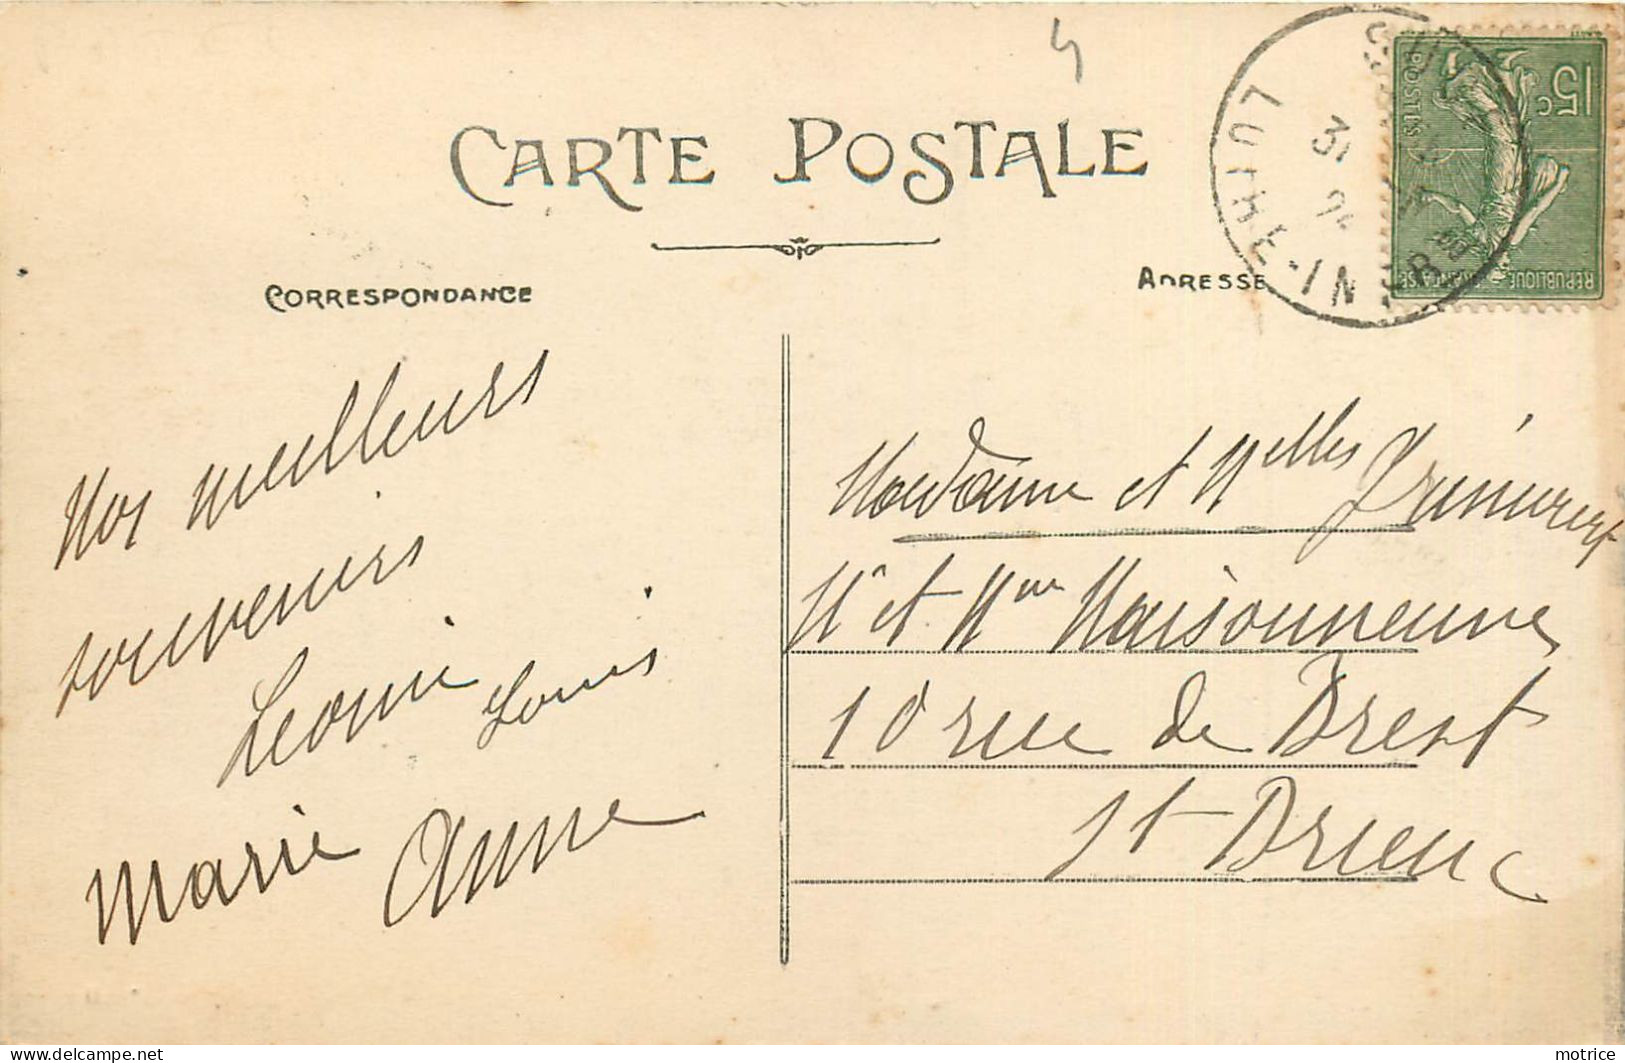 CARTE POSTALE
CORRESPONDANCE
ADRESSE
15c
POSTES
REPUBLIQUE FRANÇAISE
LOIRE-INF
31
Nos meilleurs
souvenirs
Leonie Louis
Marie Anne
Madame et Melles
Mr et Mme Maisonneuve
10 rue de Brest
St Brieuc
motrice